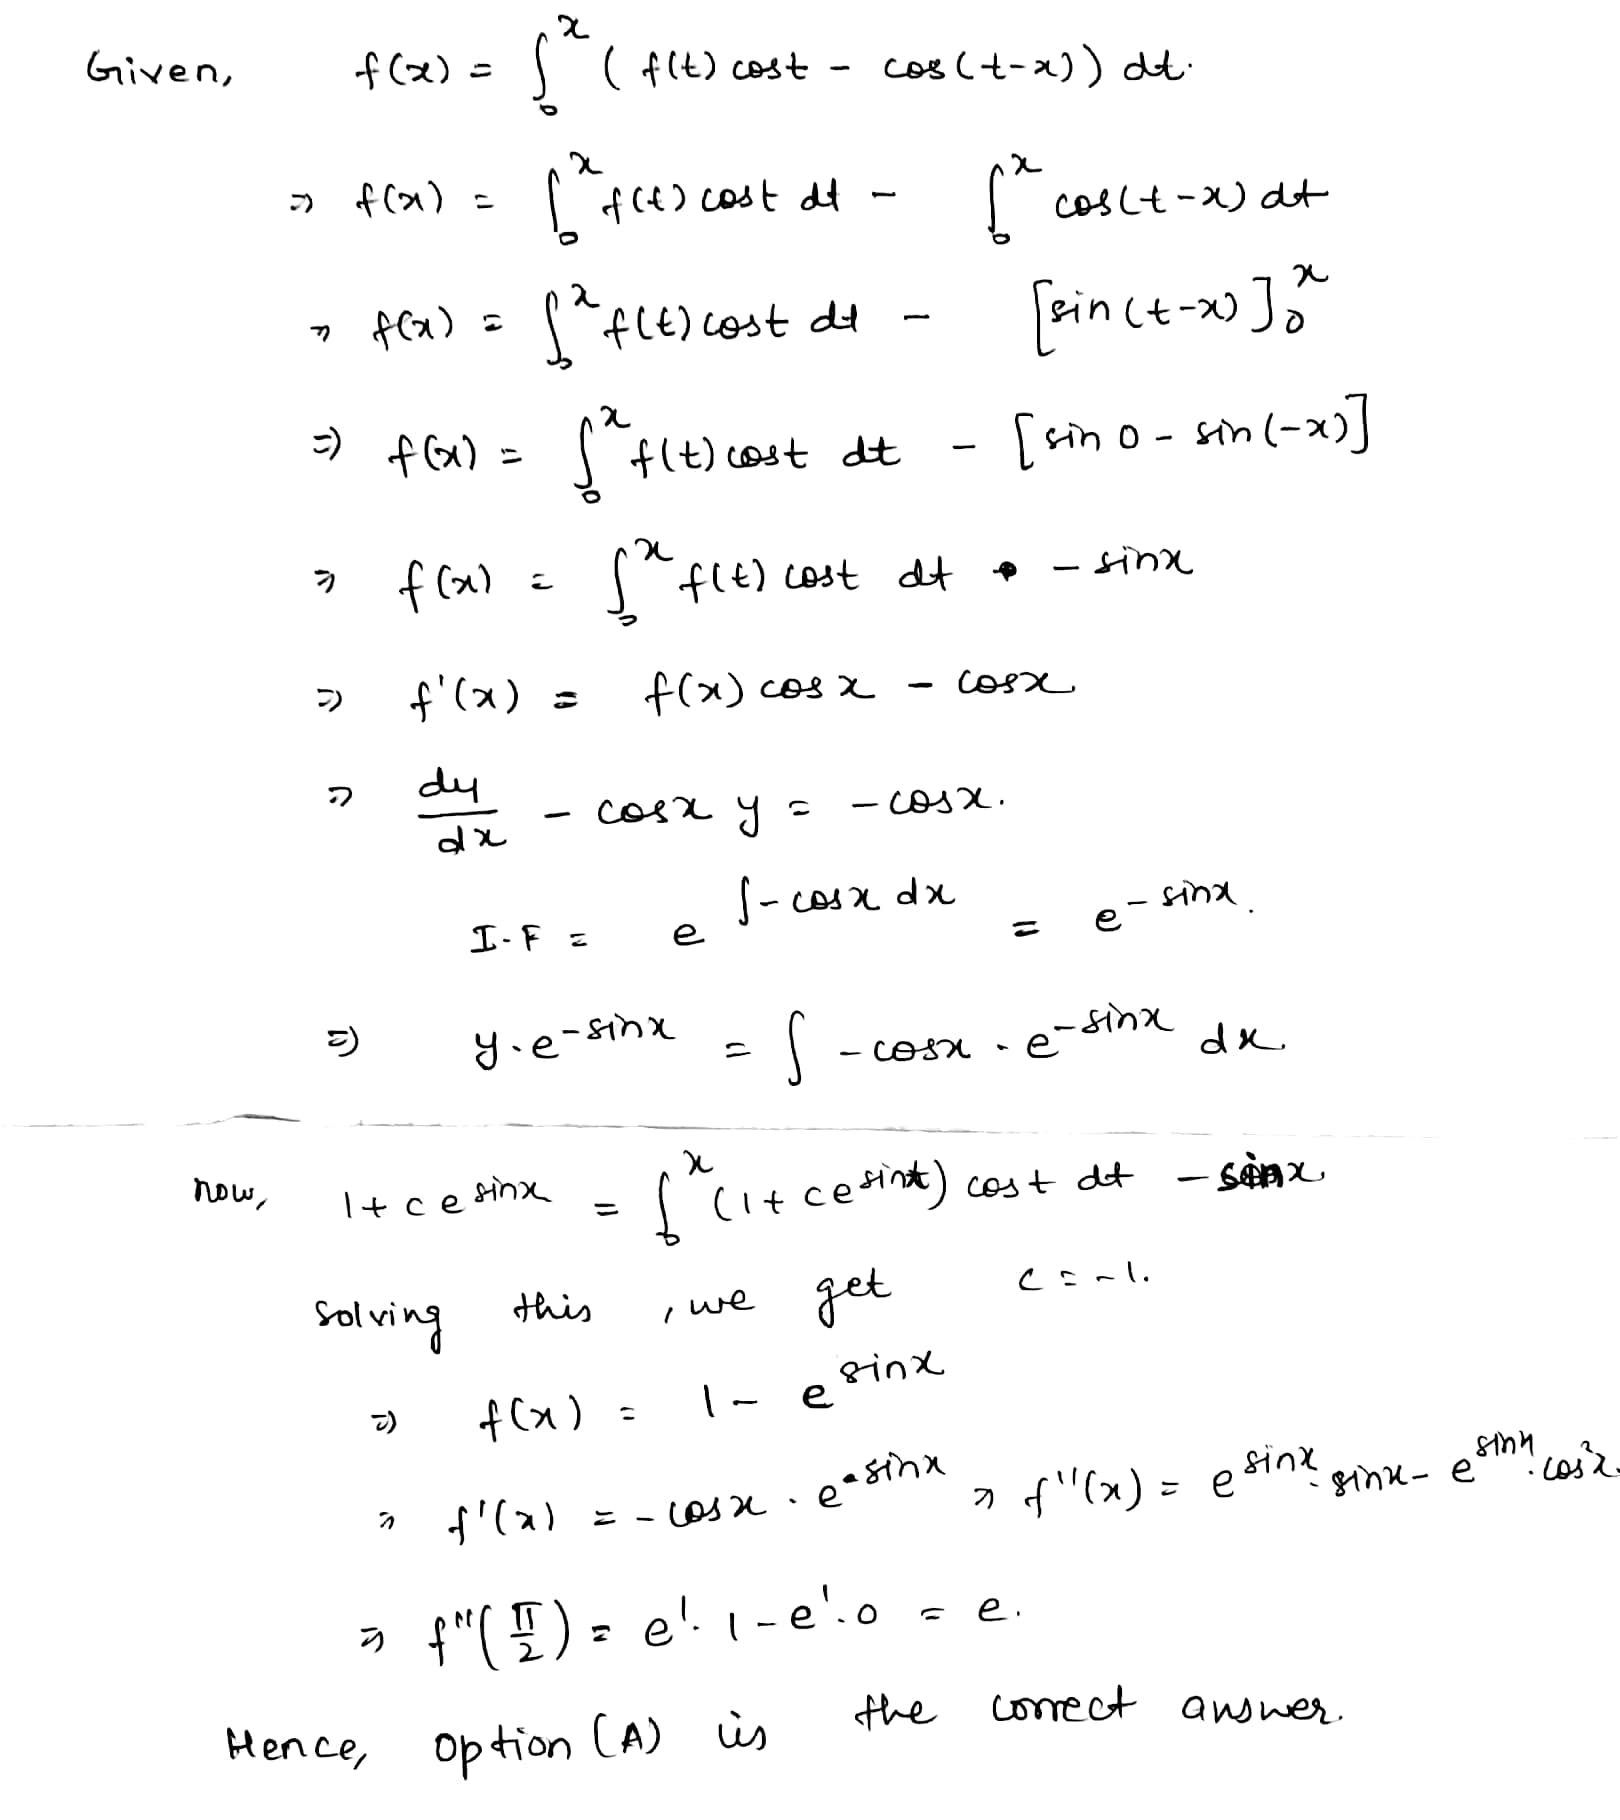 Given, f(x) = ∫₀ˣ ( f(t) cost - cos(t-x)) dt.
⇒ f(x) = ∫₀ˣ f(t) cost dt - ∫₀ˣ cos(t-x) dt
⇒ f(x) = ∫₀ˣ f(t) cost dt - [sin(t-x)]₀ˣ
⇒ f(x) = ∫₀ˣ f(t) cost dt - [sin 0 - sin(-x)]
⇒ f(x) = ∫₀ˣ f(t) cost dt - sinx
⇒ f'(x) = f(x) cos x - cosx
⇒ dy/dx - cosx y = -cosx.
I.F = e^(∫-cosx dx) = e^(-sinx).
⇒ y.e^(-sinx) = ∫ -cosx . e^(-sinx) dx
now, 1+ce^(sinx) = ∫₀ˣ (1+ce^(sint)) cost dt - sinx
Solving this, we get c = -1.
⇒ f(x) = 1 - e^(sinx)
⇒ f'(x) = -cosx . e^(sinx) ⇒ f''(x) = e^(sinx).sinx - e^(sinx).cos²x.
⇒ f''(π/2) = e¹.1 - e¹.0 = e.
Hence, option (A) is the correct answer.